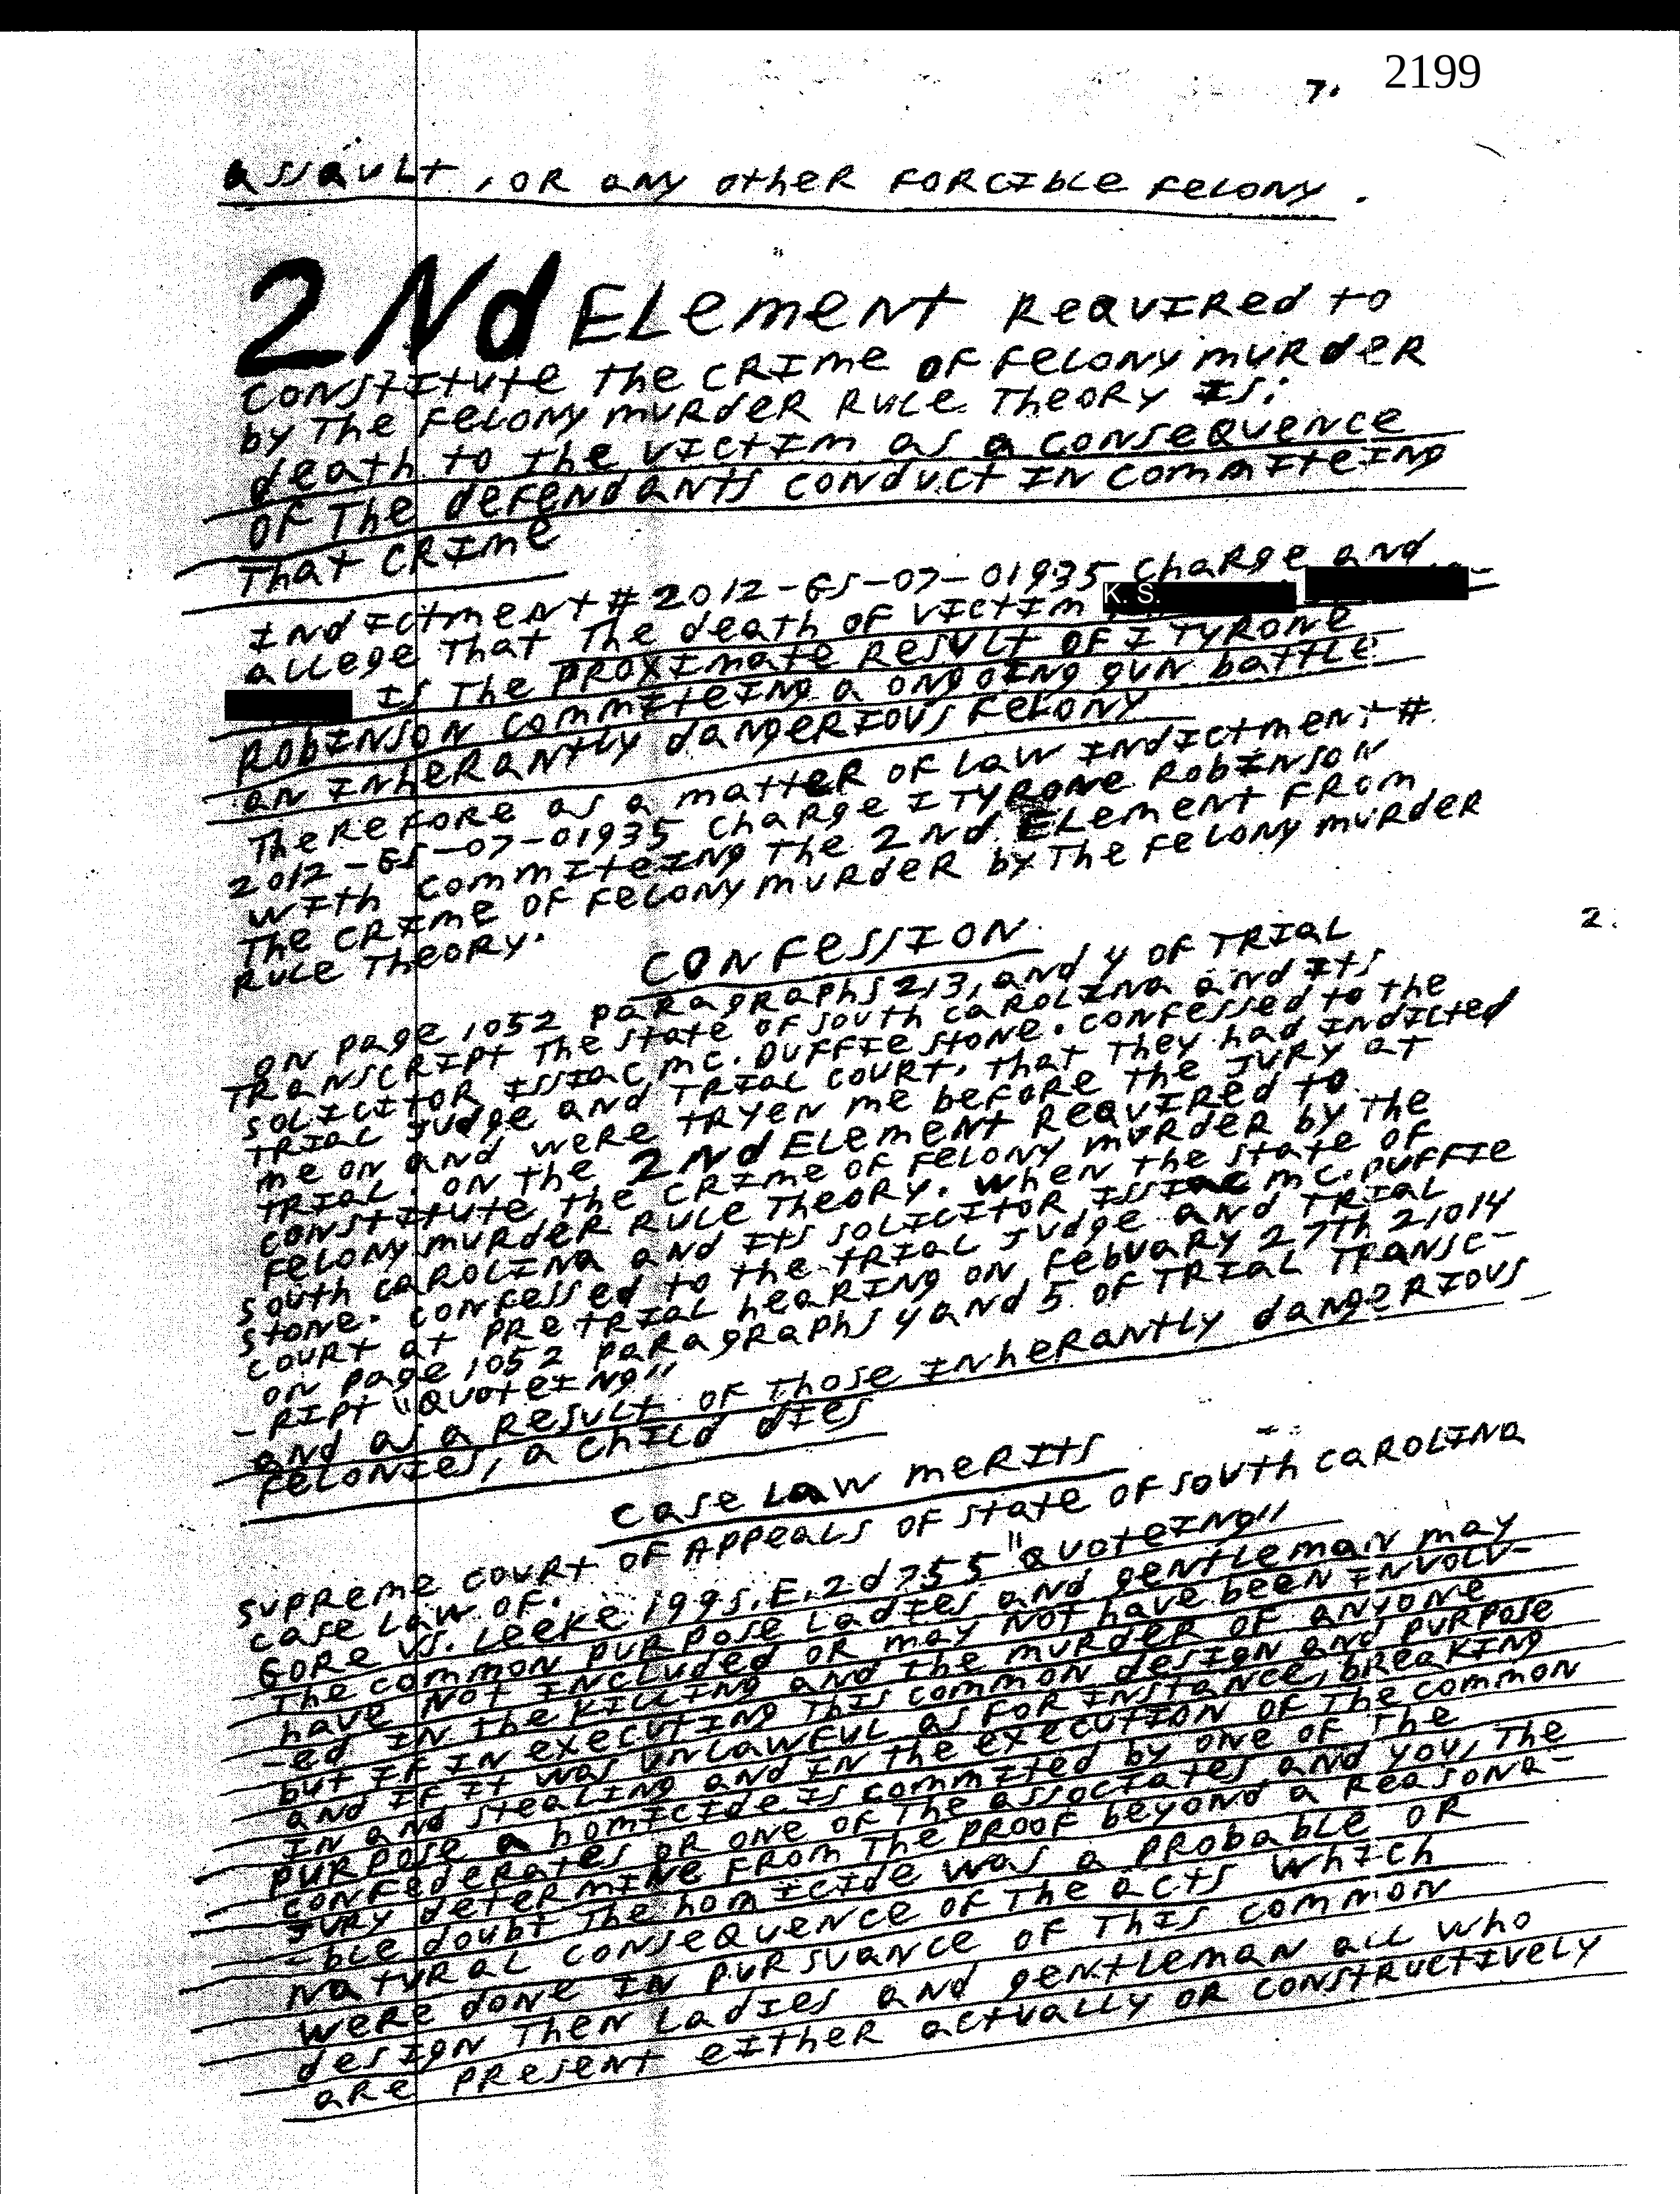 7. 2199
assault, or any other forcible felony.
2Nd Element required to
constitute the crime of felony murder
by the felony murder rule theory is:
death to the victim as a consequence
of the defendants conduct in commiteing
that crime
indictment # 2012-GS-07-01935 charge and
allege that the death of victim K. S.
is the proximate result of I Tyrone
Robinson commiteing a ongoing gun battle
an inherantly dangerious felony
Therefore as a matter of law indictment #
2012-GS-07-01935 charge I Tyrone Robinson
with commiteing the 2nd Element from
the crime of felony murder by the felony murder
rule theory.
2.
Confession
on page 1052 paragraphs 2,3, and 4 of trial
transcript the state of south carolina and its
solicitor Issiac mc. Duffie stone. confessed to the
trial judge and trial court, that they had indicted
me on and were tryen me before the jury at
trial. on the 2Nd Element required to
constitute the crime of felony murder by the
felony murder rule theory. when the state of
south carolina and its solicitor Issiac mc. Duffie
stone. confessed to the trial judge and trial
court at pretrial hearing on febuary 27th 21014
on page 1052 paragraphs 4 and 5 of trial transc-
-ript "quoteing"
and as a result of those inherantly dangerious
felonies, a child dies
case law merits
supreme court of Appeals of state of south carolina
case law of.
Gore vs. Leeke 199 S.E.2d 755 "quoteing"
The common purpose ladies and gentleman may
have not included or may not have been involv-
-ed in the killing and the murder of anyone
but if in executing this common design and purpose
and if it was unlawful as for instance, breaking
in and stealing and in the execution of the common
purpose a homicide is commited by one of the
confederates or one of the associates and you, the
jury determine from the proof beyond a reasona-
-ble doubt the homicide was a probable or
natural consequence of the acts which
were done in pursuance of this common
design then ladies and gentleman all who
are present either actually or constructively